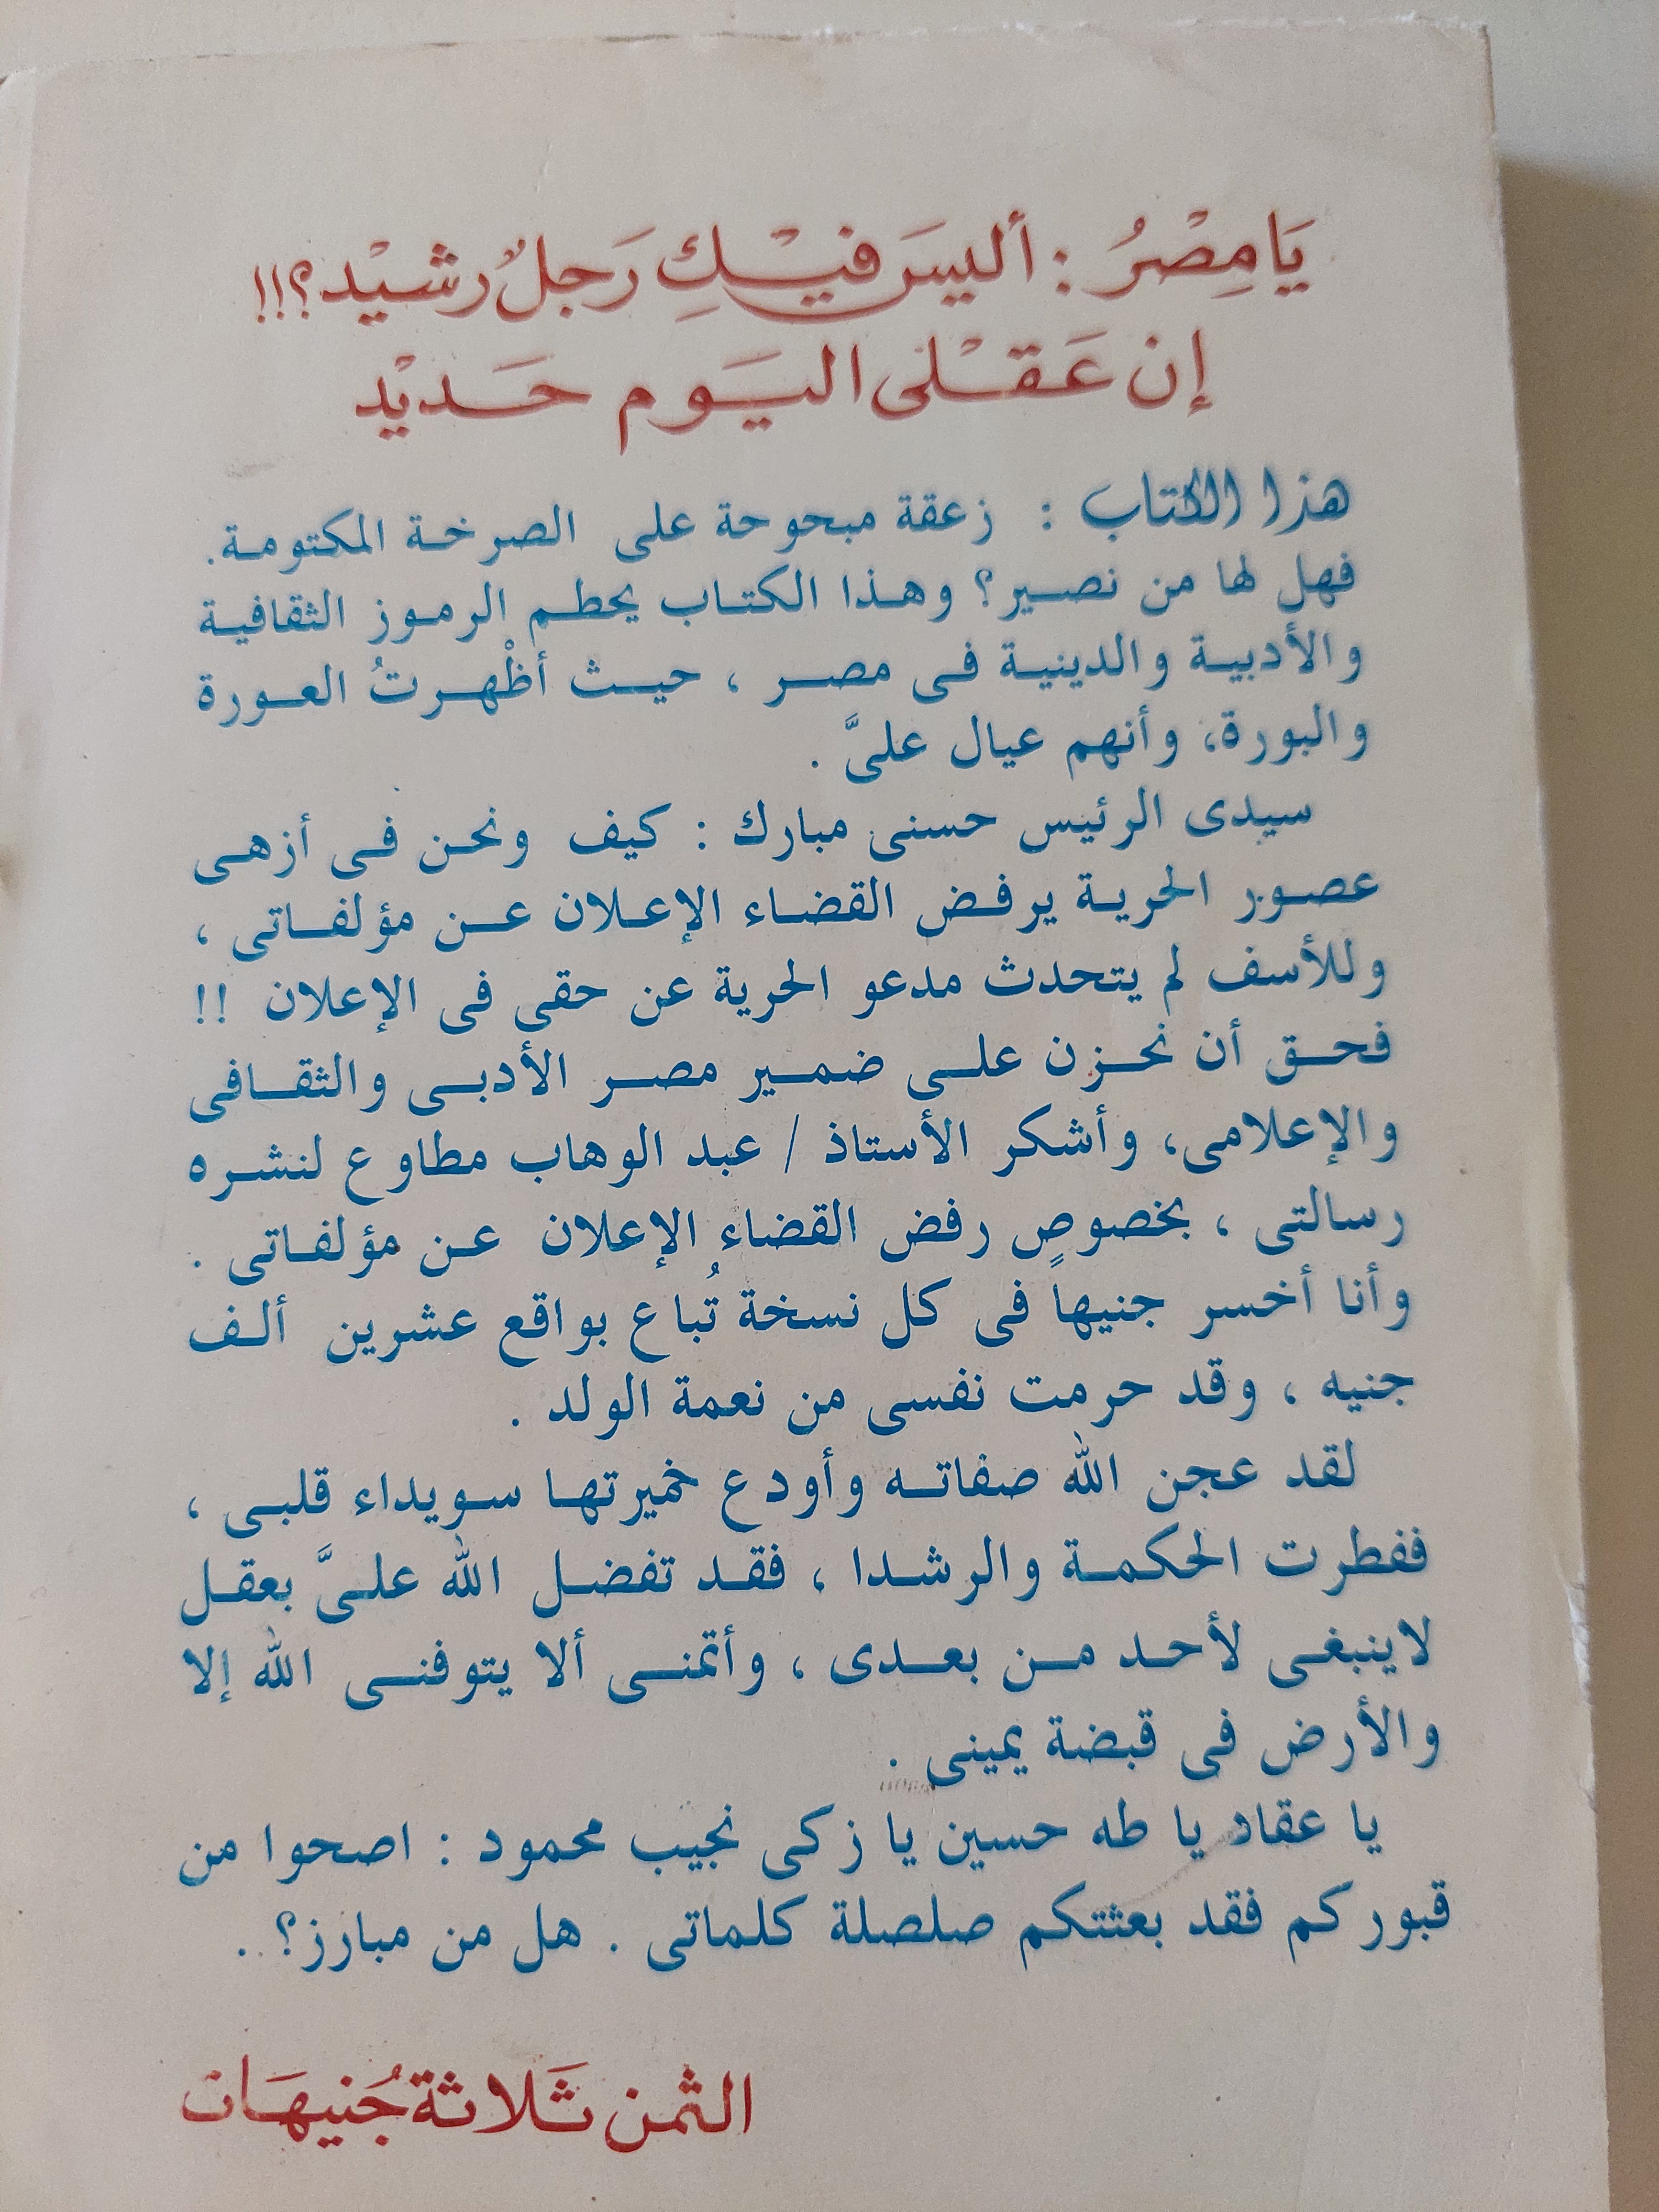 يَا مِصْرُ : أليسَ فيْكِ رَجلٌ رشيْد؟!!
إن عَقْلى اليَوم حَديْد
هذا الكتاب : زعقة مبحوحة على الصرخة المكتومة.
فهل لها من نصير؟ وهذا الكتاب يحطم الرموز الثقافية
والأدبية والدينية فى مصر ، حيث أظْهرتُ العورة
والبورة، وأنهم عيال علىَّ .
سيدى الرئيس حسنى مبارك : كيف ونحن فى أزهى
عصور الحرية يرفض القضاء الإعلان عن مؤلفاتى ،
وللأسف لم يتحدث مدعو الحرية عن حقى فى الإعلان !!
فحق أن نحزن على ضمير مصر الأدبى والثقافى
والإعلامى، وأشكر الأستاذ / عبد الوهاب مطاوع لنشره
رسالتى ، بخصوص رفض القضاء الإعلان عن مؤلفاتى .
وأنا أخسر جنيهاً فى كل نسخة تُباع بواقع عشرين ألف
جنيه ، وقد حرمت نفسى من نعمة الولد .
لقد عجن الله صفاته وأودع خميرتها سويداء قلبى ،
ففطرت الحكمة والرشدا ، فقد تفضل الله علىَّ بعقل
لاينبغى لأحد من بعدى ، وأتمنى ألا يتوفنى الله إلا
والأرض فى قبضة يمينى .
يا عقاد يا طه حسين يا زكى نجيب محمود : اصحوا من
قبوركم فقد بعثتكم صلصلة كلماتى . هل من مبارز؟ ..
الثمن ثَلاثة جُنيهَات